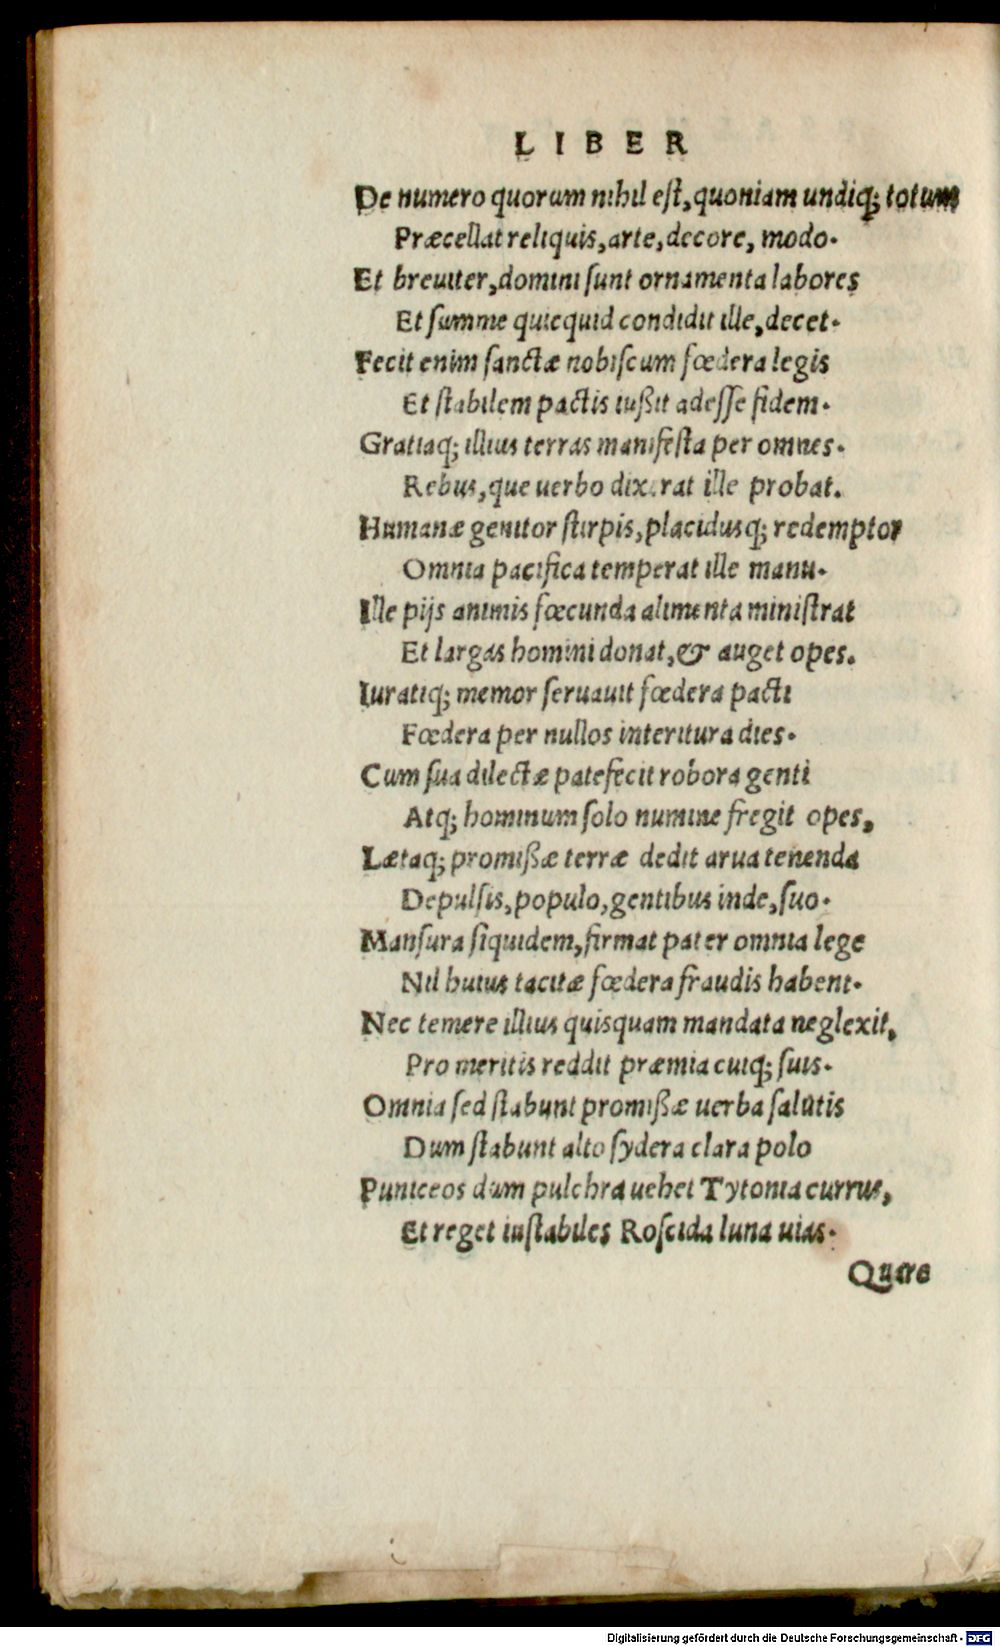 LIBER
De numero quorum nihil est, quoniam undiq; totum
Præcellat reliquis, arte, decore, modo.
Et breuiter, domini sunt ornamenta labores
Et summe quicquid condidit ille, decet.
Fecit enim sanctæ nobiscum fœdera legis
Et stabilem pactis iußit adesse fidem.
Gratiaq; illius terras manifesta per omnes.
Rebus, que uerbo dixerat ille probat.
Humanæ genitor stirpis, placidusq; redemptor
Omnia pacifica temperat ille manu.
Ille pijs animis fœcunda alimenta ministrat
Et largas homini donat, & auget opes.
Iuratiq; memor seruauit fœdera pacti
Fœdera per nullos interitura dies.
Cum sua dilectæ patefecit robora genti
Atq; hominum solo numine fregit opes,
Lætaq; promißæ terræ dedit arua tenenda
Depulsis, populo, gentibus inde, suo.
Mansura siquidem, firmat pater omnia lege
Nil huius tacitæ fœdera fraudis habent.
Nec temere illius quisquam mandata neglexit,
Pro meritis reddit præmia cuiq; suis.
Omnia sed stabunt promißæ uerba salutis
Dum stabunt alto sydera clara polo
Puniceos dum pulchra uehet Tytonia currus,
Et reget instabiles Roscida luna uias.
Quare
Digitalisierung gefördert durch die Deutsche Forschungsgemeinschaft - DFG